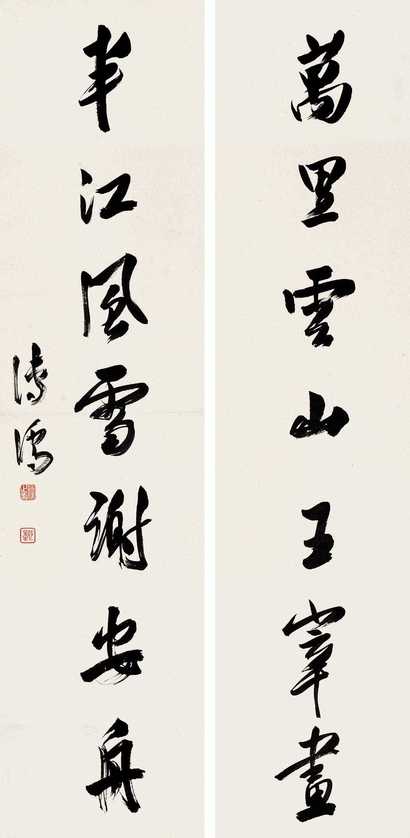 萬里雲山王宰畫
半江風雪謝安舟
溥儒